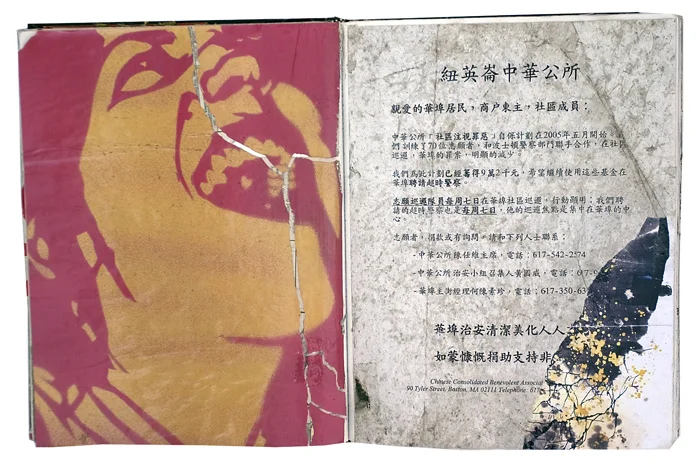 紐英崙中華公所
親愛的華埠居民，商户東主，社區成員：
中華公所「社區注視罪惡」自保計劃在2005年五月開始。
們訓練了70位志願者，和波士頓警察部門聯手合作，在社區
巡邏，華埠的罪案，明顯的減少。
我們為此計劃已經籌得9萬2千元，希望繼續使用這些基金在
華埠聘請超時警察。
志願巡邏隊員每周七日在華埠社區巡邏，行動顯明；我們聘
請的超時警察也是每周七日，他的巡邏焦點是集中在華埠的中
心。
志願者，捐款或有詢問，請和下列人士聯系：
-中華公所陳任維主席，電話：617-542-2574
-中華公所治安小組召集人黃國威，電話：617-
-華埠主街經理何陳素珍，電話：617-350-63
華埠治安清潔美化人人
如蒙慷慨捐助支持非
Chinese Consolidated Benevolent Associat
90 Tyler Street, Boston, MA 02111 Telephone: 617